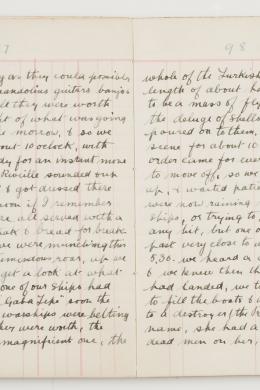 7
y as they could possibly
mandolins guitars banjos
ll they were worth
t of what was going
he morrow, & so we
bout 10 oclock, with
dy for an instant move
Reville sounded our
& got dressed there
ion if I remember
ere all served with a
& bread for break
we were munching this
roar, up we
get a look at what
one of our ships had
"Gaba Tepe" soon the
warships were belting
her were worth, the
magnificent one, the
98
whole of the Turkish
length of about
to be a mass of
the deluge of shells
poured on them,
scene for about 10
order came for
to move off, so we
up, & waited
were now raining
ships, or trying to,
any hit, but one or
past very close to
5.30. we heard a
& we knew then th
had landed, we
to fill the boats &
to a destroyer (the
name, she had a
dead men on her,